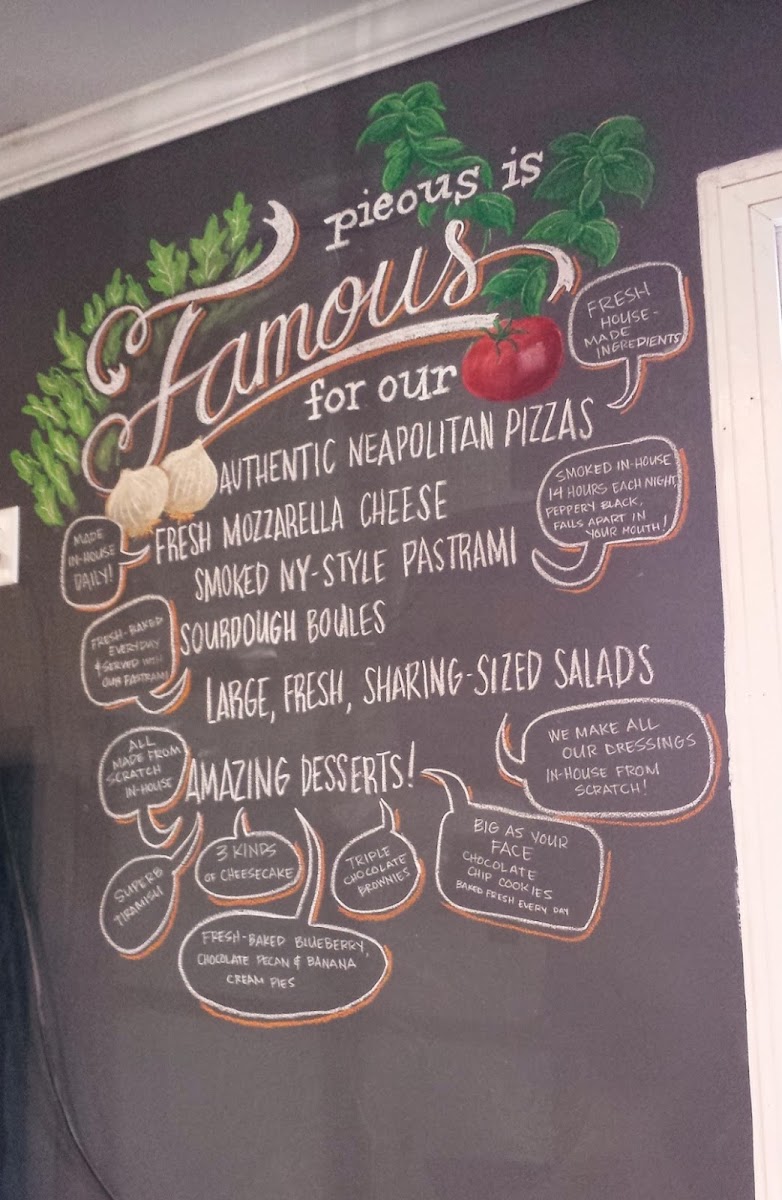 pieous is
Famous
for our
FRESH
HOUSE-
MADE
INGREDIENTS
AUTHENTIC NEAPOLITAN PIZZAS
FRESH MOZZARELLA CHEESE
MADE
IN-HOUSE
DAILY!
SMOKED NY-STYLE PASTRAMI
SMOKED IN-HOUSE
14 HOURS EACH NIGHT,
PEPPERY BLACK,
FALLS APART IN
YOUR MOUTH!
SOURDOUGH BOULES
FRESH-BAKED
EVERYDAY
& SERVED WITH
OUR PASTRAMI
LARGE, FRESH, SHARING-SIZED SALADS
WE MAKE ALL
OUR DRESSINGS
IN-HOUSE FROM
SCRATCH!
AMAZING DESSERTS!
ALL
MADE FROM
SCRATCH
IN-HOUSE
SUPERB
TIRAMISU
3 KINDS
OF CHEESECAKE
FRESH-BAKED BLUEBERRY,
CHOCOLATE PECAN & BANANA
CREAM PIES
TRIPLE
CHOCOLATE
BROWNIES
BIG AS YOUR
FACE
CHOCOLATE
CHIP COOKIES
BAKED FRESH EVERY DAY